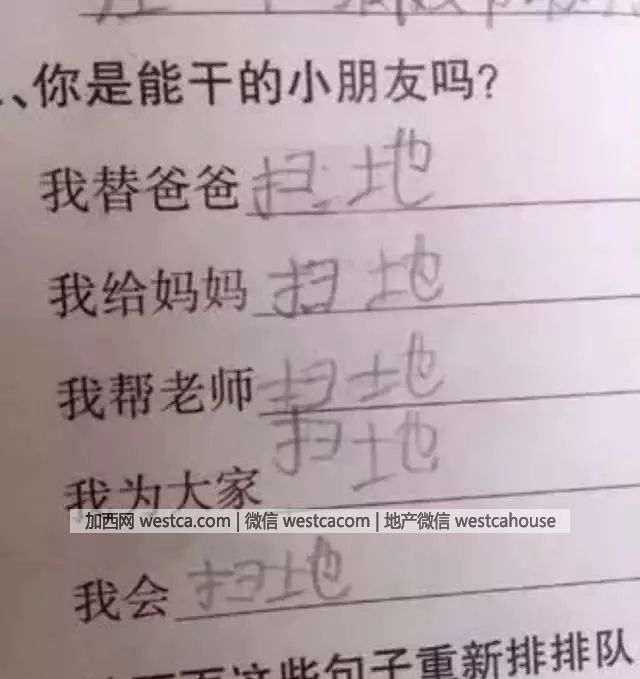 、你是能干的小朋友吗?
我替爸爸扫地
我给妈妈扫地
我帮老师扫地
我为大家扫地
加西网 westca.com | 微信 westcacom | 地产微信 westcahouse
我会扫地
这些句子重新排排队